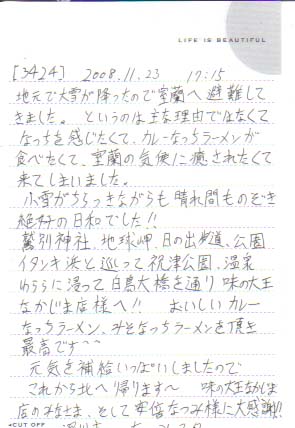 LIFE IS BEAUTIFUL
[3424] 2008.11.23 17:15
地元で大雪が降ったので室蘭へ避難して
きました。というのは主な理由ではなくて
なっちを感じたくて、カレーなっちラーメンが
食べたくて、室蘭の気候に癒されたくて
来てしまいました。
小雪がちらつきながらも晴れ間ものぞき
絶好の日和でした!!
鷲別神社、地球岬、日の出歩道、公園
イタンキ浜と巡って祝津公園、温泉
ゆららに浸って白鳥大橋を通り 味の大王
なかじま店様へ!! おいしいカレー
なっちラーメン、みそなっちラーメンを頂き
最高です〜〜
元気を補給いっぱいしましたので
これから北へ帰ります〜 味の大王なかじま
店のみなさま、そして安倍なつみ様に大感謝!!
CUT OFF